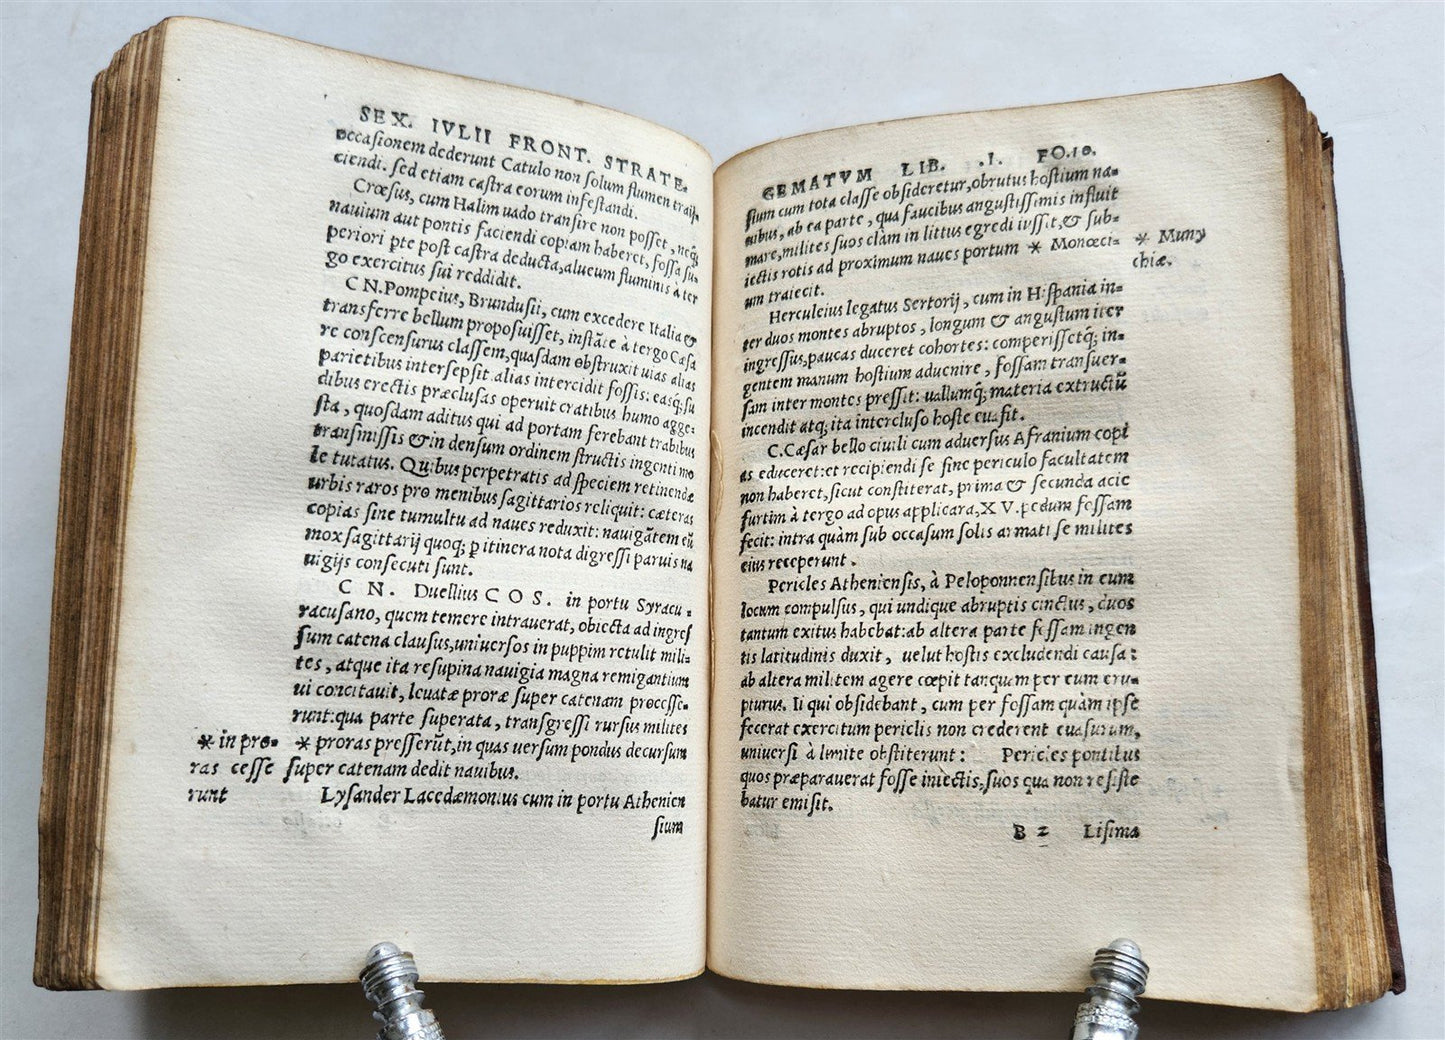 SEX. IVLII FRONT. STRATE-
occasionem dederunt Catulo non solum flumen traij-
ciendi. sed etiam castra eorum infestandi.
Crœsus, cum Halim uado transire non posset, neq;
nauium aut pontis faciendi copiam haberet, fossa su-
periori pte post castra deducta, alueum fluminis à ter
go exercitus sui reddidit.
CN. Pompeius, Brundusii, cum excedere Italia &
transferre bellum proposuisset, instāte à tergo Cæsa
re conscensurus classem, quasdam obstruxit uias alias
parietibus intersepsit. alias intercidit fossis: easq; su
dibus erectis præclusas operuit cratibus humo agge-
sta, quosdam aditus qui ad portam ferebant trabibus
transmissis & in densum ordinem structis ingenti mo
le tutatus. Quibus perpetratis ad speciem retinendæ
urbis raros pro menibus sagittarios reliquit: cæteras
copias sine tumultu ad naues reduxit: nauigātem eū
mox sagittarij quoq; p itinera nota digressi paruis na
uigijs consecuti sunt.
CN. Duellius COS. in portu Syracu-
racusano, quem temere intrauerat, obiecta ad ingres
sum catena clausus, uniuersos in puppim retulit mili-
tes, atque ita resupina nauigia magna remigantium
ui concitauit, leuatæ proræ super catenam processe-
runt: qua parte superata, transgressi rursus milites
* proras presserūt, in quas uersum pondus decursum
super catenam dedit nauibus.
* in pro-
ras cesse
runt
Lysander Lacedæmonius cum in portu Athenien
sium
GEMATVM LIB. .I. FO.10.
sium cum tota classe obsideretur, obrutus hostium na-
uibus, ab ea parte, qua faucibus angustissimis influit
mare, milites suos clàm in littus egredi iussit, & sub-
iectis rotis ad proximum naues portum * Monœci-
um traiecit.
* Muny
chiæ.
Herculeius legatus Sertorij, cum in Hispania in-
ter duos montes abruptos, longum & angustum iter
ingressus, paucas duceret cohortes: comperissetq; in-
gentem manum hostium aduenire, fossam transuer-
sam inter montes pressit: uallumq; materia extructū
incendit atq; ita intercluso hoste euasit.
C. Cæsar bello ciuili cum aduersus Afranium copi
as educeret: et recipiendi se sine periculo facultatem
non haberet, sicut constiterat, prima & secunda acie
furtim à tergo ad opus applicata, XV. pedum fossam
fecit: intra quàm sub occasum solis armati se milites
eius receperunt.
Pericles Atheniensis, à Peloponnensibus in eum
locum compulsus, qui undique abruptis cinctus, duos
tantum exitus habebat: ab altera parte fossam ingen
tis latitudinis duxit, uelut hostis excludendi causa:
ab altera militem agere cœpit tanquam per eum eru-
pturus. Ii qui obsidebant, cum per fossam quàm ipse
fecerat exercitum periclis non crederent euasurum,
uniuersi à limite obstiterunt: Pericles pontibus
quos præparauerat fosse iniectis, suos qua non resiste
batur emisit.
B 2 Lisima